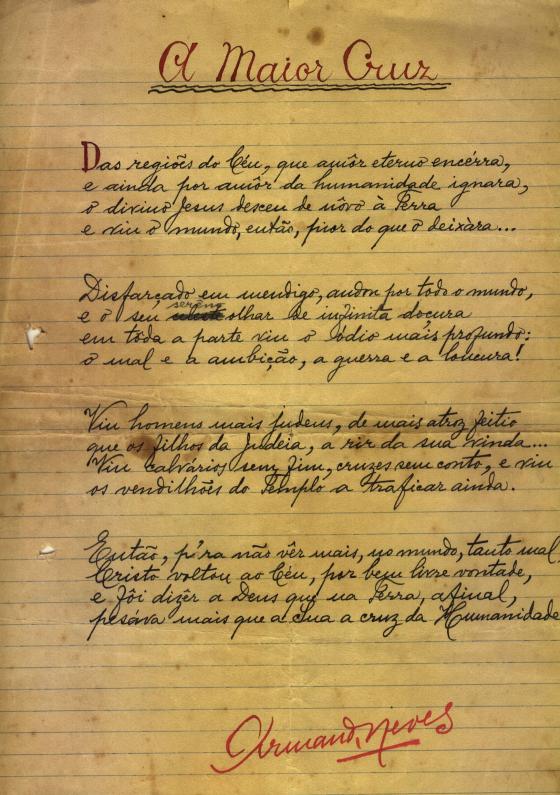 A Maior Cruz
Das regiões do Céu, que amôr eterno encérra,
e ainda por amôr da humanidade ignara,
o divino Jesus desceu de nôvo à Terra
e viu o mundo, então, pior do que o deixàra...
Disfarçado em mendigo, andou por todo o mundo,
sereno
e o seu olhar de infinita doçura
em tôda a parte viu o ódio mais profundo:
o mal e a ambição, a guerra e a loucura!
Viu homens mais judeus, de mais atroz feitio
que os filhos da Judeia, a rir da sua vinda...
Viu calvários sem fim, cruzes sem conto, e viu
os vendilhões do Templo a traficar ainda.
Então, p'ra não vêr mais, no mundo, tanto mal,
Cristo voltou ao Céu, por bem livre vontade,
e fôi dizêr a Deus que na Terra, afinal,
pesáva mais que a Sua a cruz da Humanidade
Armando Neves